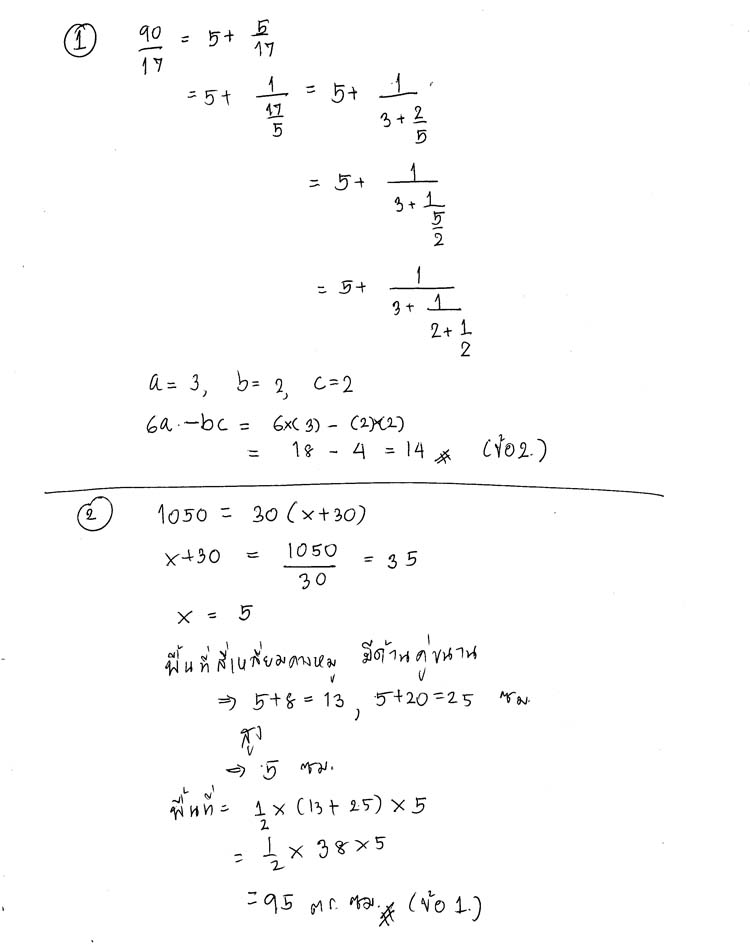 ① 90/17 = 5 + 5/17
= 5 + 1/(17/5) = 5 + 1/(3 + 2/5)
= 5 + 1/(3 + 1/(5/2))
= 5 + 1/(3 + 1/(2 + 1/2))
a = 3, b = 2, c = 2
6a - bc = 6×(3) - (2)×(2)
= 18 - 4 = 14 # (ข้อ 2.)
② 1050 = 30 (x+30)
x+30 = 1050/30 = 35
x = 5
พื้นที่สี่เหลี่ยมคางหมู มีด้านคู่ขนาน
⇒ 5+8 = 13, 5+20 = 25 ซม.
สูง
⇒ 5 ซม.
พื้นที่ = 1/2 × (13 + 25) × 5
= 1/2 × 38 × 5
= 95 ตร. ซม. # (ข้อ 1.)